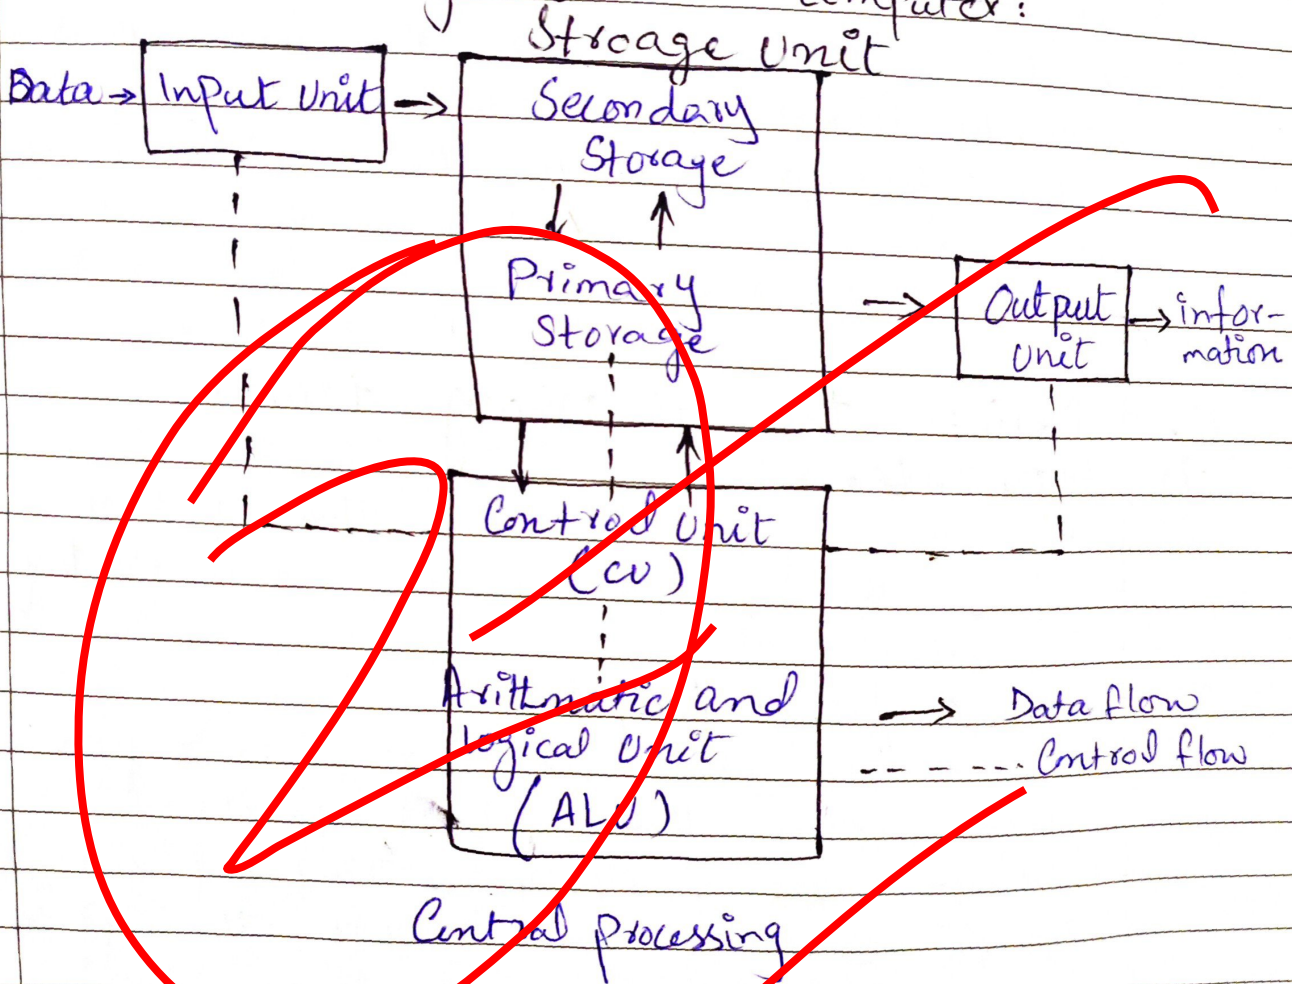 computer:
Stroage Unit
Data → Input Unit
Secondary
Storage
Primary
Storage
Output
Unit
infor-
mation
Control Unit
(CU)
Arithmatic and
logical Unit
(ALU)
Data flow
Control flow
Central processing
2